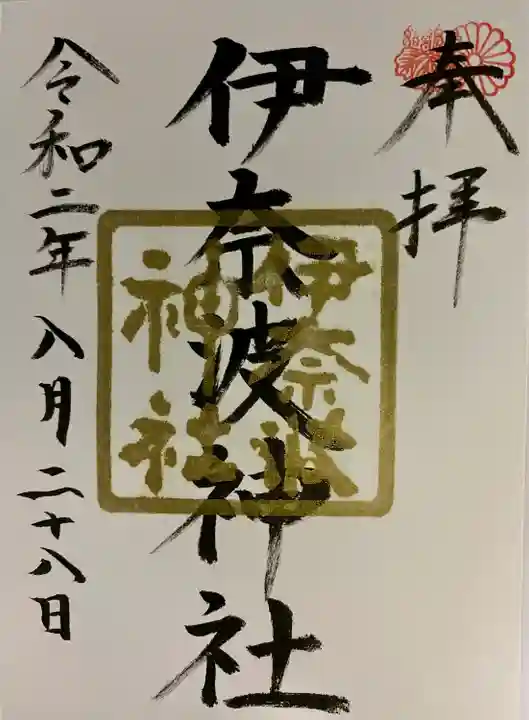 奉拝
伊奈波神社
伊奈波
神社
令和二年八月二十八日